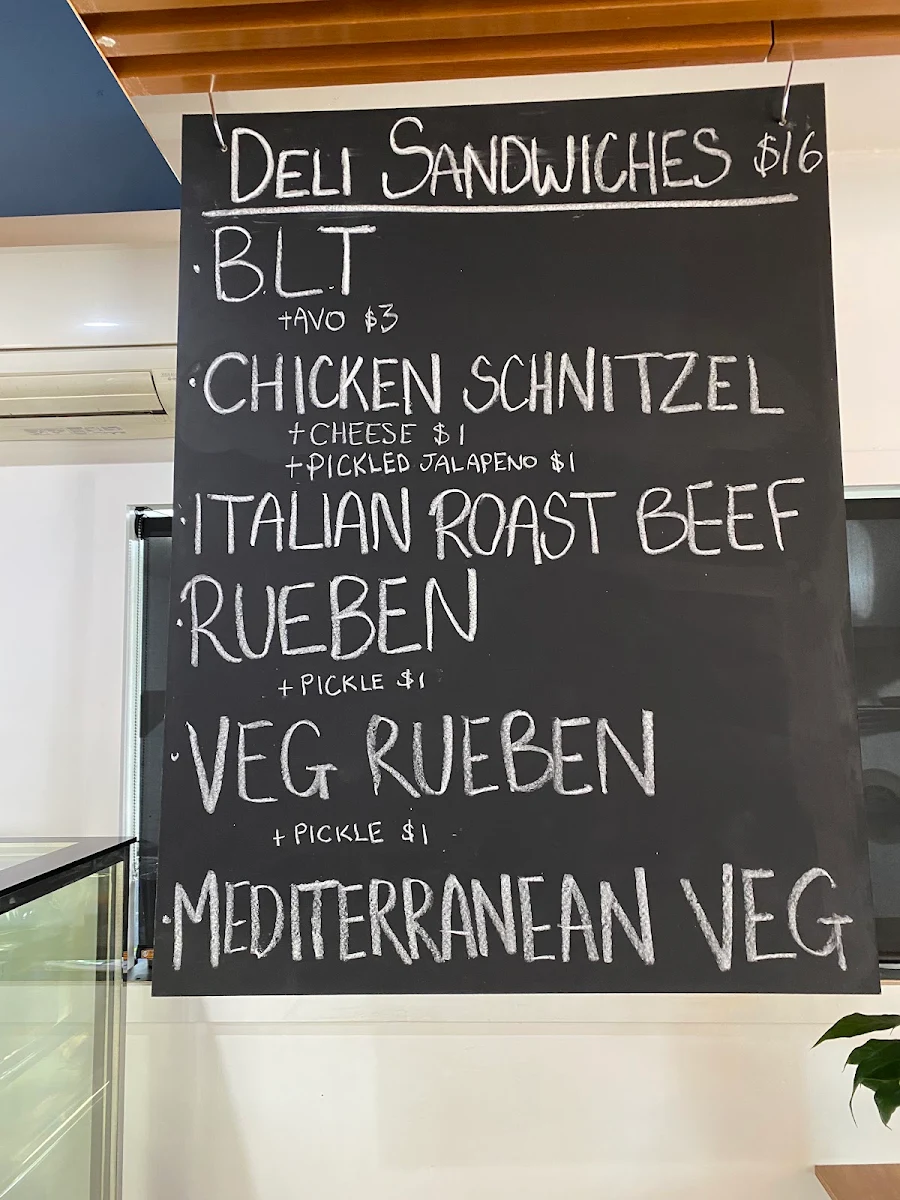 DELI SANDWICHES $16
· B.L.T
+AVO $3
· CHICKEN SCHNITZEL
+ CHEESE $1
+PICKLED JALAPENO $1
· ITALIAN ROAST BEEF
· RUEBEN
+ PICKLE $1
· VEG RUEBEN
+ PICKLE $1
· MEDITERRANEAN VEG